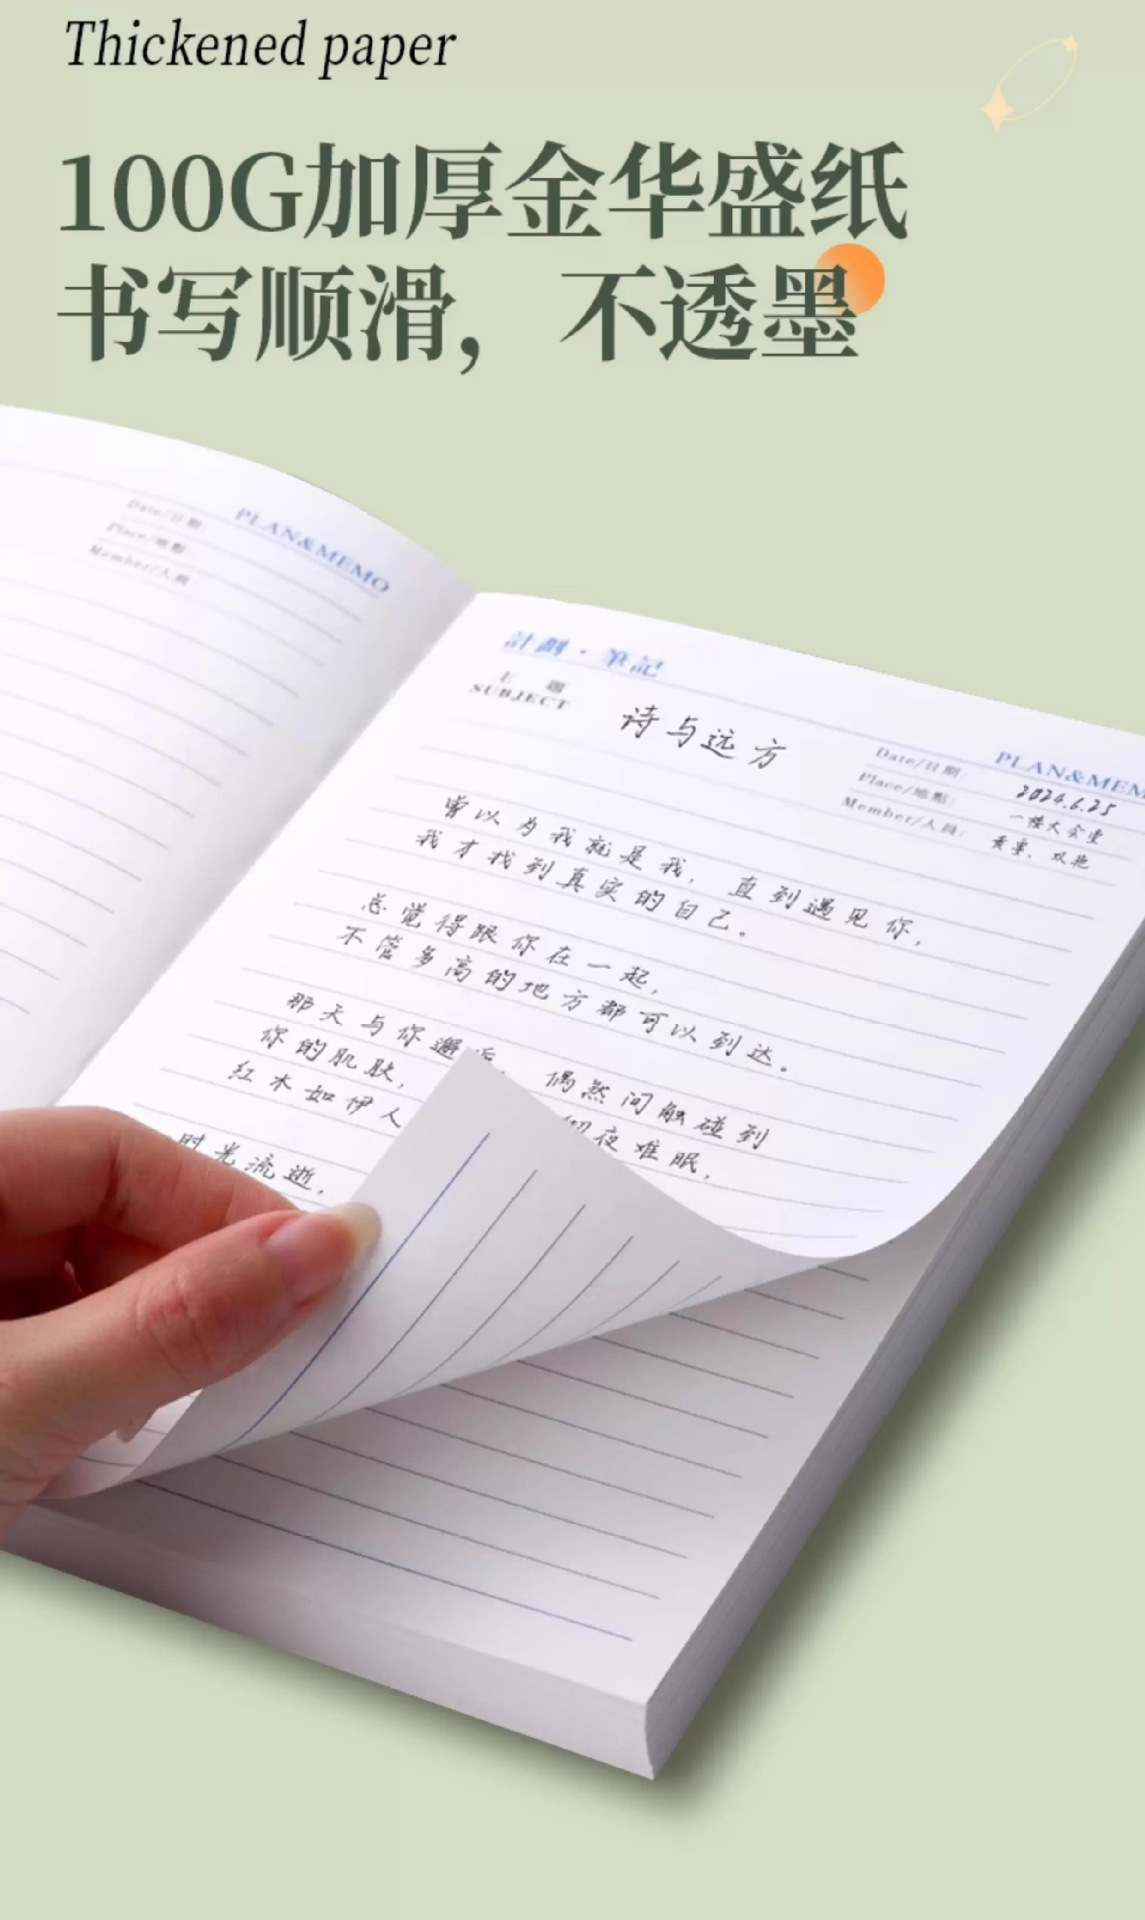 Thickened paper
100G加厚金华盛纸
书写顺滑，不透墨
Date/日期
Place/地點
Member/人員
PLAN&MEMO
計劃·筆記
主 題
SUBJECT
诗与远方
PLAN&MEM
Date/日期: 2024.6.25
Place/地點: 一楼大会堂
Member/人員:
曾以为我就是我，直到遇见你，
我才找到真实的自己。
总觉得跟你在一起，
不管多高的地方都可以到达。
那天与你邂逅，偶然间触碰到
你的肌肤，彻夜难眠，
红木如伊人
时光流逝，